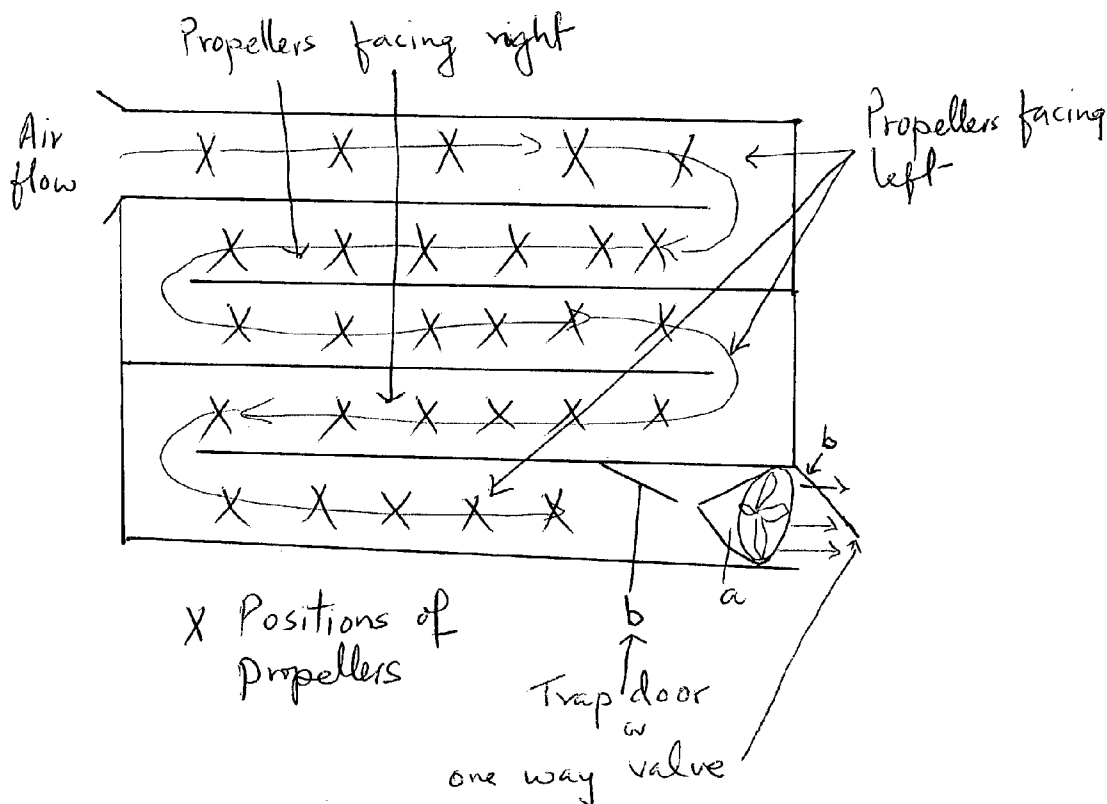 Propellers facing right
Air
flow
Propellers facing
left
b
a
b
X Positions of
propellers
Trap door
or
one way valve